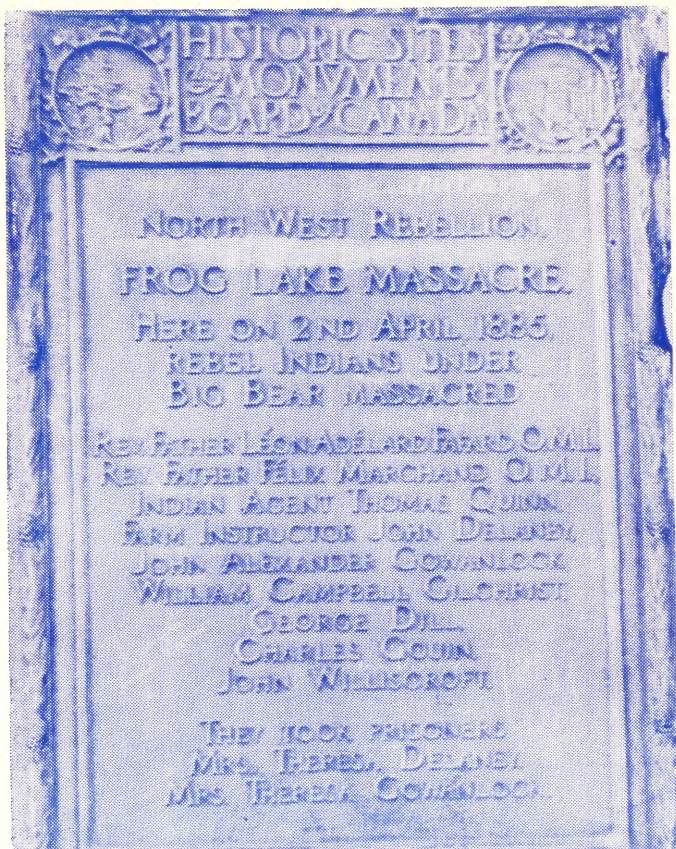 HISTORIC SITES
& MONVMENTS
BOARD OF CANADA
NORTH WEST REBELLION.
FROG LAKE MASSACRE.
HERE ON 2ND APRIL 1885,
REBEL INDIANS UNDER
BIG BEAR MASSACRED
REV. FATHER LÉON ADÉLARD FAFARD O.M.I.,
REV. FATHER FÉLIX MARCHAND O.M.I.,
INDIAN AGENT THOMAS QUINN,
FARM INSTRUCTOR JOHN DELANEY,
JOHN ALEXANDER GOWANLOCK,
WILLIAM CAMPBELL GILCHRIST,
GEORGE DILL,
CHARLES GOUIN,
JOHN WILLISCROFT.
THEY TOOK PRISONERS
MRS. THERESA DELANEY,
MRS. THERESA GOWANLOCK.